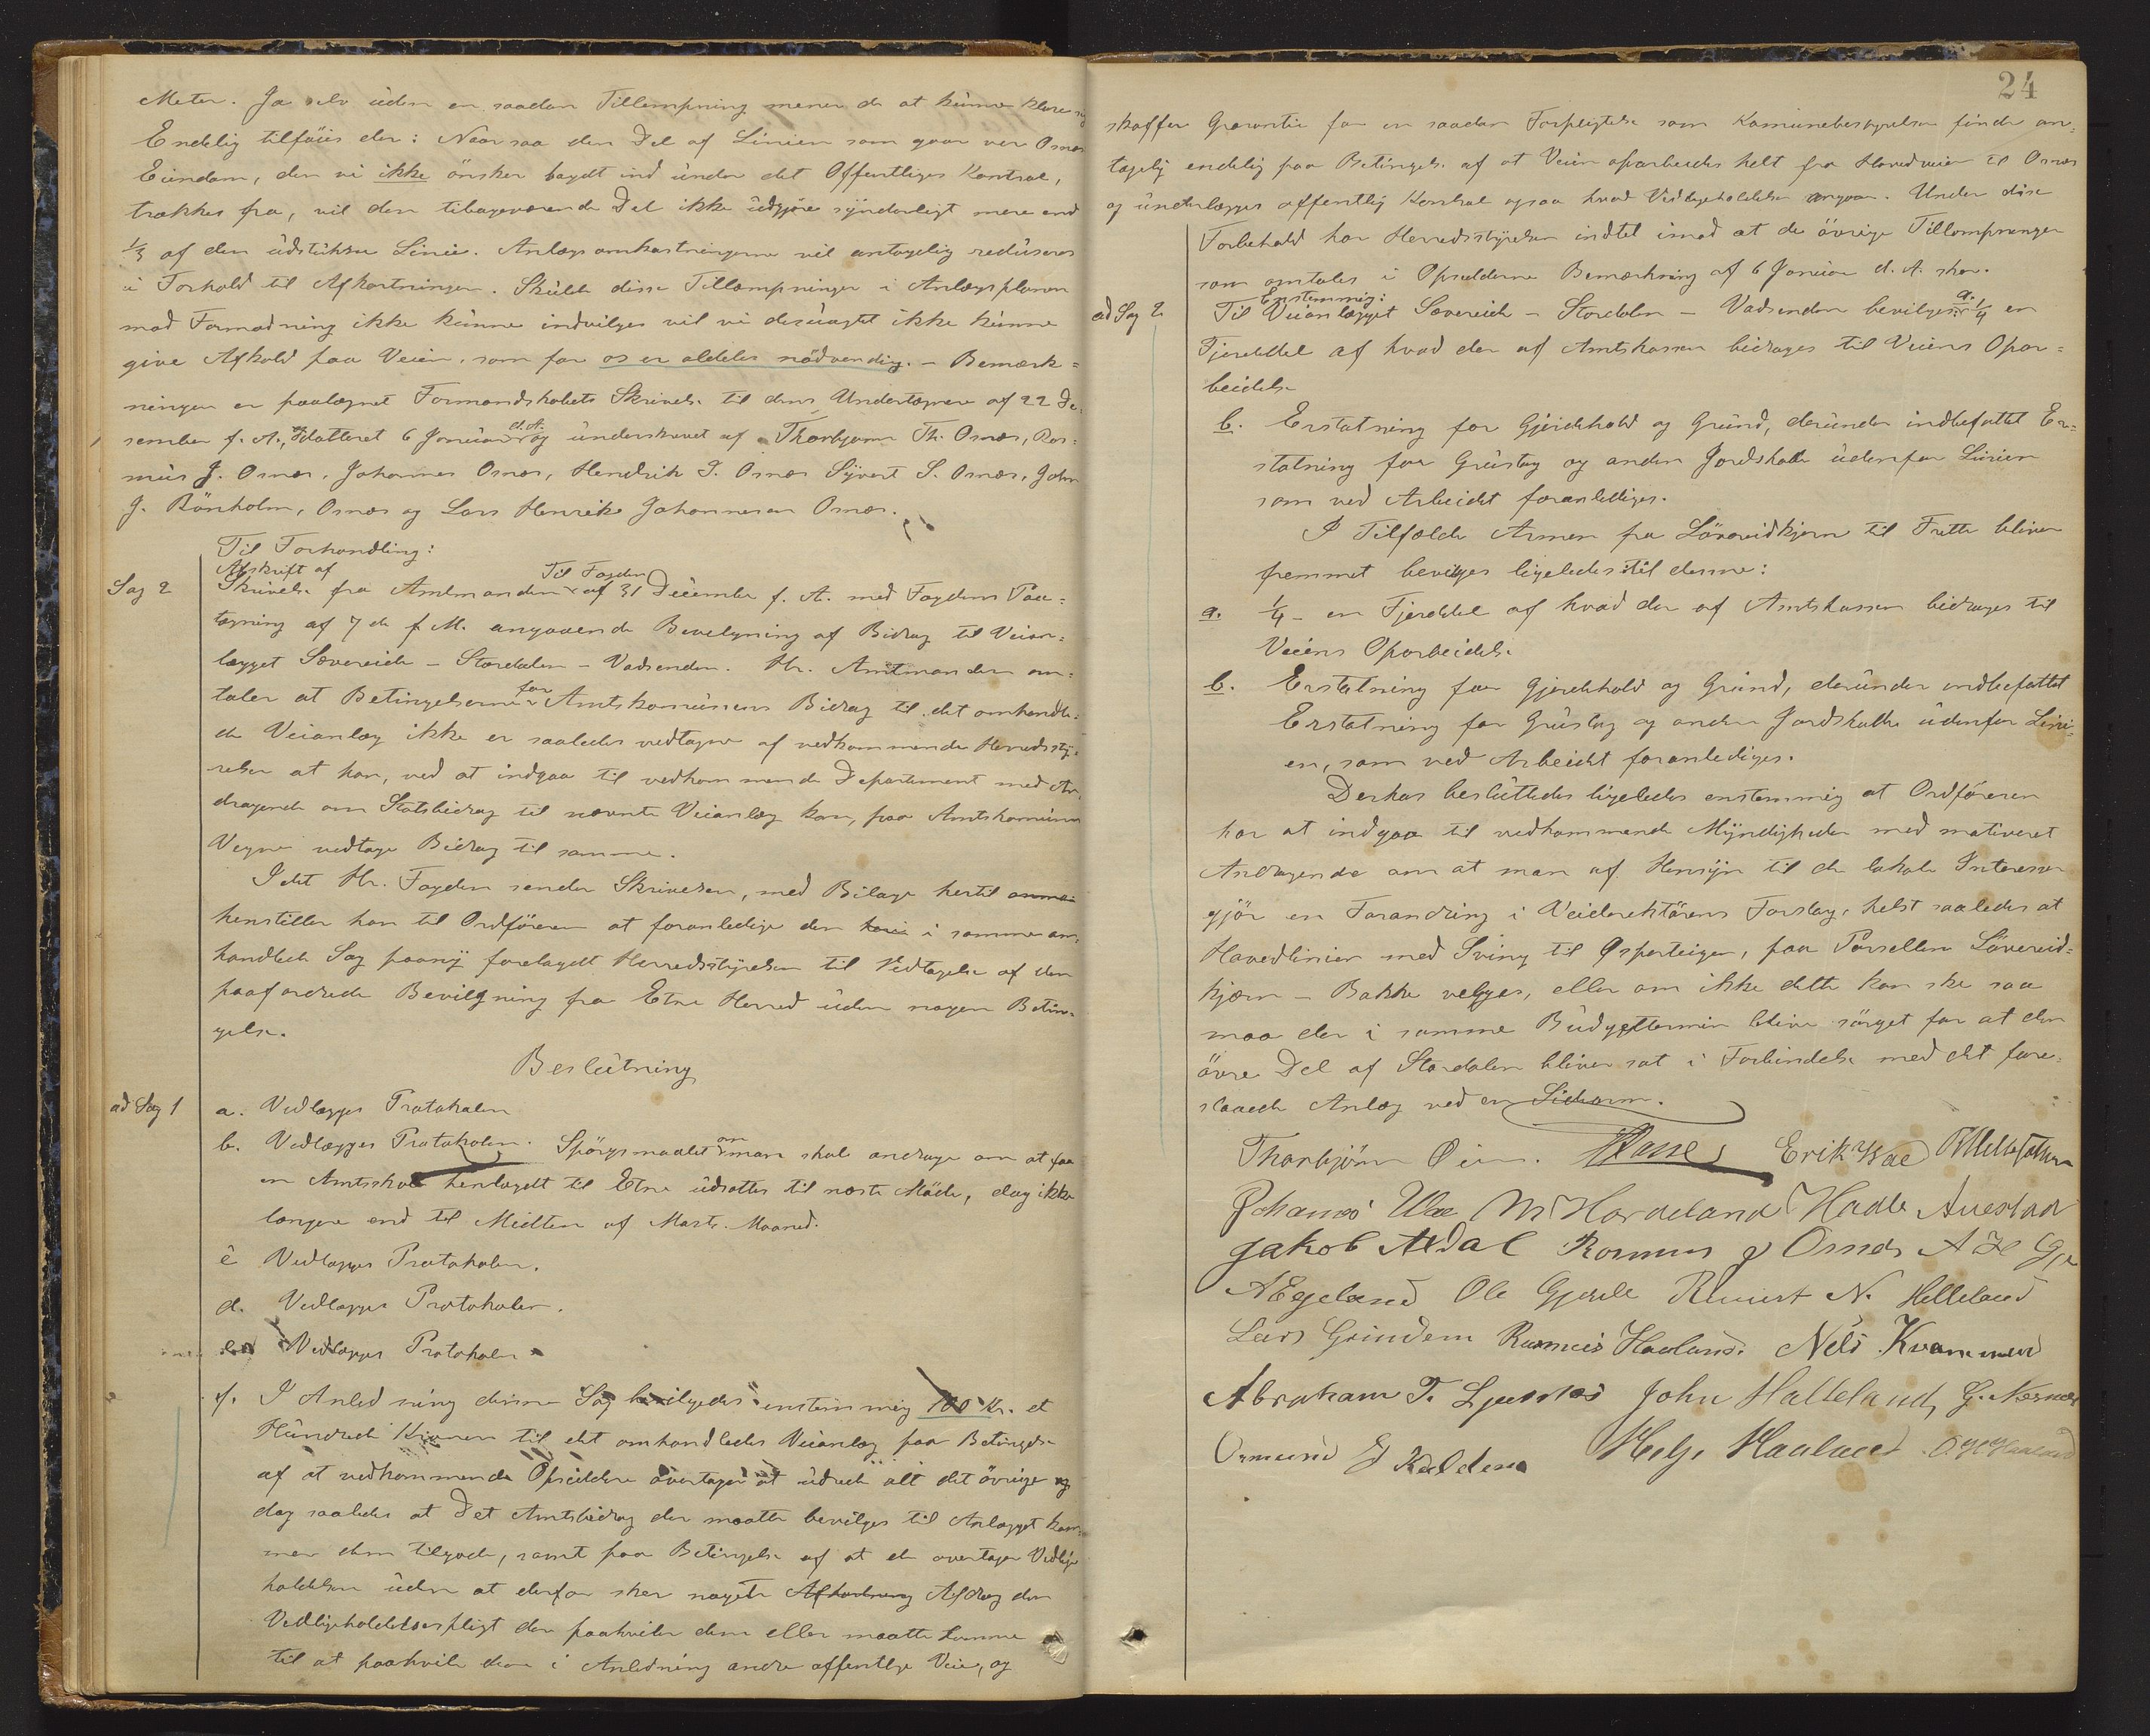 Meter. Ja selv uden en saadan Tillempning mener de at kunne klare sig
Endelig tilföies der: Naar saa den Del af Linien som gaar over Osnes
Eiendom, den vi ikke önsker bøgdt ind under det Offentliges Kontrol,
trækkes fra, vil den tilbageværende Del ikke udgjöre synderligt mere end
1/3 af den udstukne Linie. Anlægsomkostningerne vil antagelig reduseres
i Forhold til Afkortningen. Skulde disse Tillempninger i Anlægsplanen
mod Formodning ikke kunne indvilges vil vi desuagtet ikke kunne
give Afkald paa Veien, som for os er aldeles nödvendig. - Bemærk=
ningen er paategnet Formandskabets Skrivelse til dens Undertegnere af 22 De=
sember f. A., dateret 6 Januar d. A. og underskrevet af Thorbjørn Th. Osnes, Ras=
mus J. Osnes, Johannes Osnes, Hendrik I. Osnes Syvert S. Osnes, John
J. Rönholm, Osnes og Lars Henrik Johannesen Osnes.
Til Forhandling:
Sag 2
Afskrift af Skrivelse fra Amtmanden Til Fogden af 31 December f. A. med Fogdens Paa=
tegning af 7 de f. M. angaaende Bevilgning af Bidrag til Veian=
lægget Sævereide - Stordalen - Vadsenden. Hr. Amtmanden om=
taler at Betingelserne for Amtskomunens Bidrag til det omhandle=
de Veianlæg ikke er saaledes vedtagne af vedkommende Herredssty=
relser at han, ved at indgaa til vedkommende Departement med An=
dragende om Statsbidrag til nævnte Veianlæg kan, paa Amtskomunens
Vegne vedtage Bidrag til samme.
Idet Hr. Fogden sender Skrivelsen, med Bilage hertil
henstiller han til Ordföreren at foranledige den i samme om=
handlede Sag paany forelagdt Herredsstyrelsen til Vedtagelse af den
paafordrede Bevilgning fra Etne Herred uden nogen Betin=
gelse.
Beslutning
ad Sag 1
a. Vedlægges Protokolen
b. Vedlægges Protokolen. Spörgsmaalet om man skal andrage om at faa
en Amtsskole henlagdt til Etne udsattes til næste Möde, dog ikke
længere end til Midten af Marts Maaned.
c Vedlægges Protokolen.
d. Vedlægges Protokolen.
e. Vedlægges Protokolen
f. I Anledning denne Sag bevilgedes enstemmig 100 Kr. et
Hundrede Kroner til det omhandledes Veianlæg paa Betingelse
af at vedkommende Opsiddere overtager at udrede alt det övrige og
dog saaledes at det Amtsbidrag der maatte bevilges til Anlægget kom=
mer dem tilgode, samt paa Betingelse af at de overtager Vedlige
holdelsen uden at derfor sker noget Afkortning Afdrag den
Vedligeholdelsespligt der paahviler dem eller maatte komme
til at paahvile dem i Anledning andre offentlige Veie, og
24
skaffer Garantie for en saadan Forpligtelse som Komunebestyrelsen finder an=
tagelig endelig paa Betingelse af at Veien oparbeides helt fra Hovedveien til Osnes
og underlægges offentlig Kontrol ogsaa hvad Vedligeholdelsen angaar. Under disse
Forbehold har Herredsstyrelsen indtet imod at de övrige Tillempninger
som omtales i Opsiddernes Bemærkning af 6 Januar d. A. sker.
ad Sag 2
Enstemmig:
Til Veianlægget Sævereide - Stordalen - Vadsenden bevilges: a. 1/4 en
Fjerdedel af hvad der af Amtskassen bidrages til Veiens Opar=
beidelse
b. Erstatning for Gjerdehold og Grund, derunder indbefattet Er=
statning for Grustag og anden Jordskade udenfor Linien
som ved Arbeidet foranlediges.
I Tilfælde Armen fra Lövereidkjærn til Frette bliver
fremmet bevilges ligeledes til denne:
a. 1/4 - en Fjerdedel af hvad der af Amtskassen bidrages til
Veiens Oparbeidelse
b. Erstatning for Gjerdehold og Grund, derunder indbefattet
Erstatning for Grustag og anden Jordskade udenfor Lini=
en, som ved Arbeidet foranlediges.
Derhos besluttedes ligeledes enstemmig at Ordföreren
har at indgaa til vedkommende Myndigheder med motiveret
Andragende om at man af Hensyn til de lokale Interesser
gjör en Forandring i Veidirektörens Forslag, helst saaledes at
Hovedlinien med Sving til Østerteigen, paa Parsellen Lövereid=
kjærn - Bakke velges, eller om ikke dette kan ske saa
maa der i samme Budgettermin blive sörget for at den
övre Del af Stordalen bliver sat i Forbindelse med det fore=
slaaede Anlæg ved en Sidearm.
Thorbjörn Øien. Erik Bae
Johannes M Hardeland
Jakob Rasmus J Osnes
A Egeland Ole Gjerde N. Helleland
Lars Grindem Rasmus Haaland. Nils Kvammen
Abraham T. John Halleland G. Næsnes
Helge Haaland